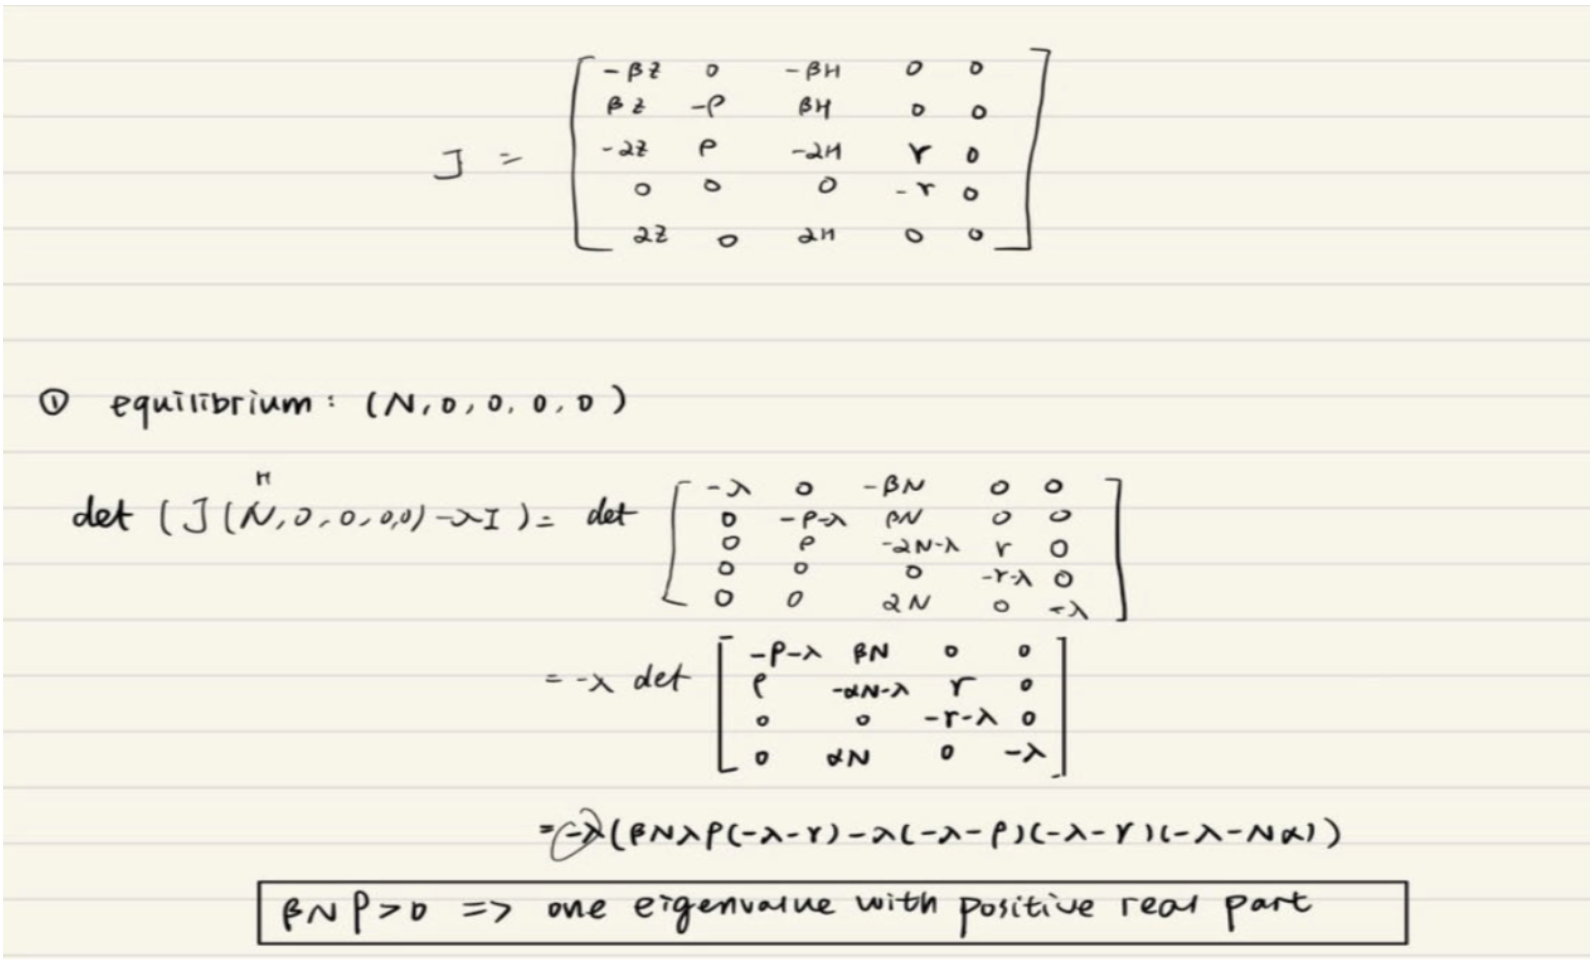 J =
-βz 0 -βH 0 0
βz -ρ βH 0 0
-2z ρ -2H r 0
0 0 0 -r 0
2z 0 2H 0 0
① equilibrium: (N, 0, 0, 0, 0)
H
det (J(N,0,0,0,0)-λI) = det
-λ 0 -βN 0 0
0 -ρ-λ βN 0 0
0 ρ -2N-λ r 0
0 0 0 -r-λ 0
0 0 2N 0 -λ
= -λ det
-ρ-λ βN 0 0
ρ -αN-λ r 0
0 0 -r-λ 0
0 αN 0 -λ
= -λ(βNλρ(-λ-r)-λ(-λ-ρ)(-λ-r)(-λ-Nα))
βNρ>0 => one eigenvalue with positive real part